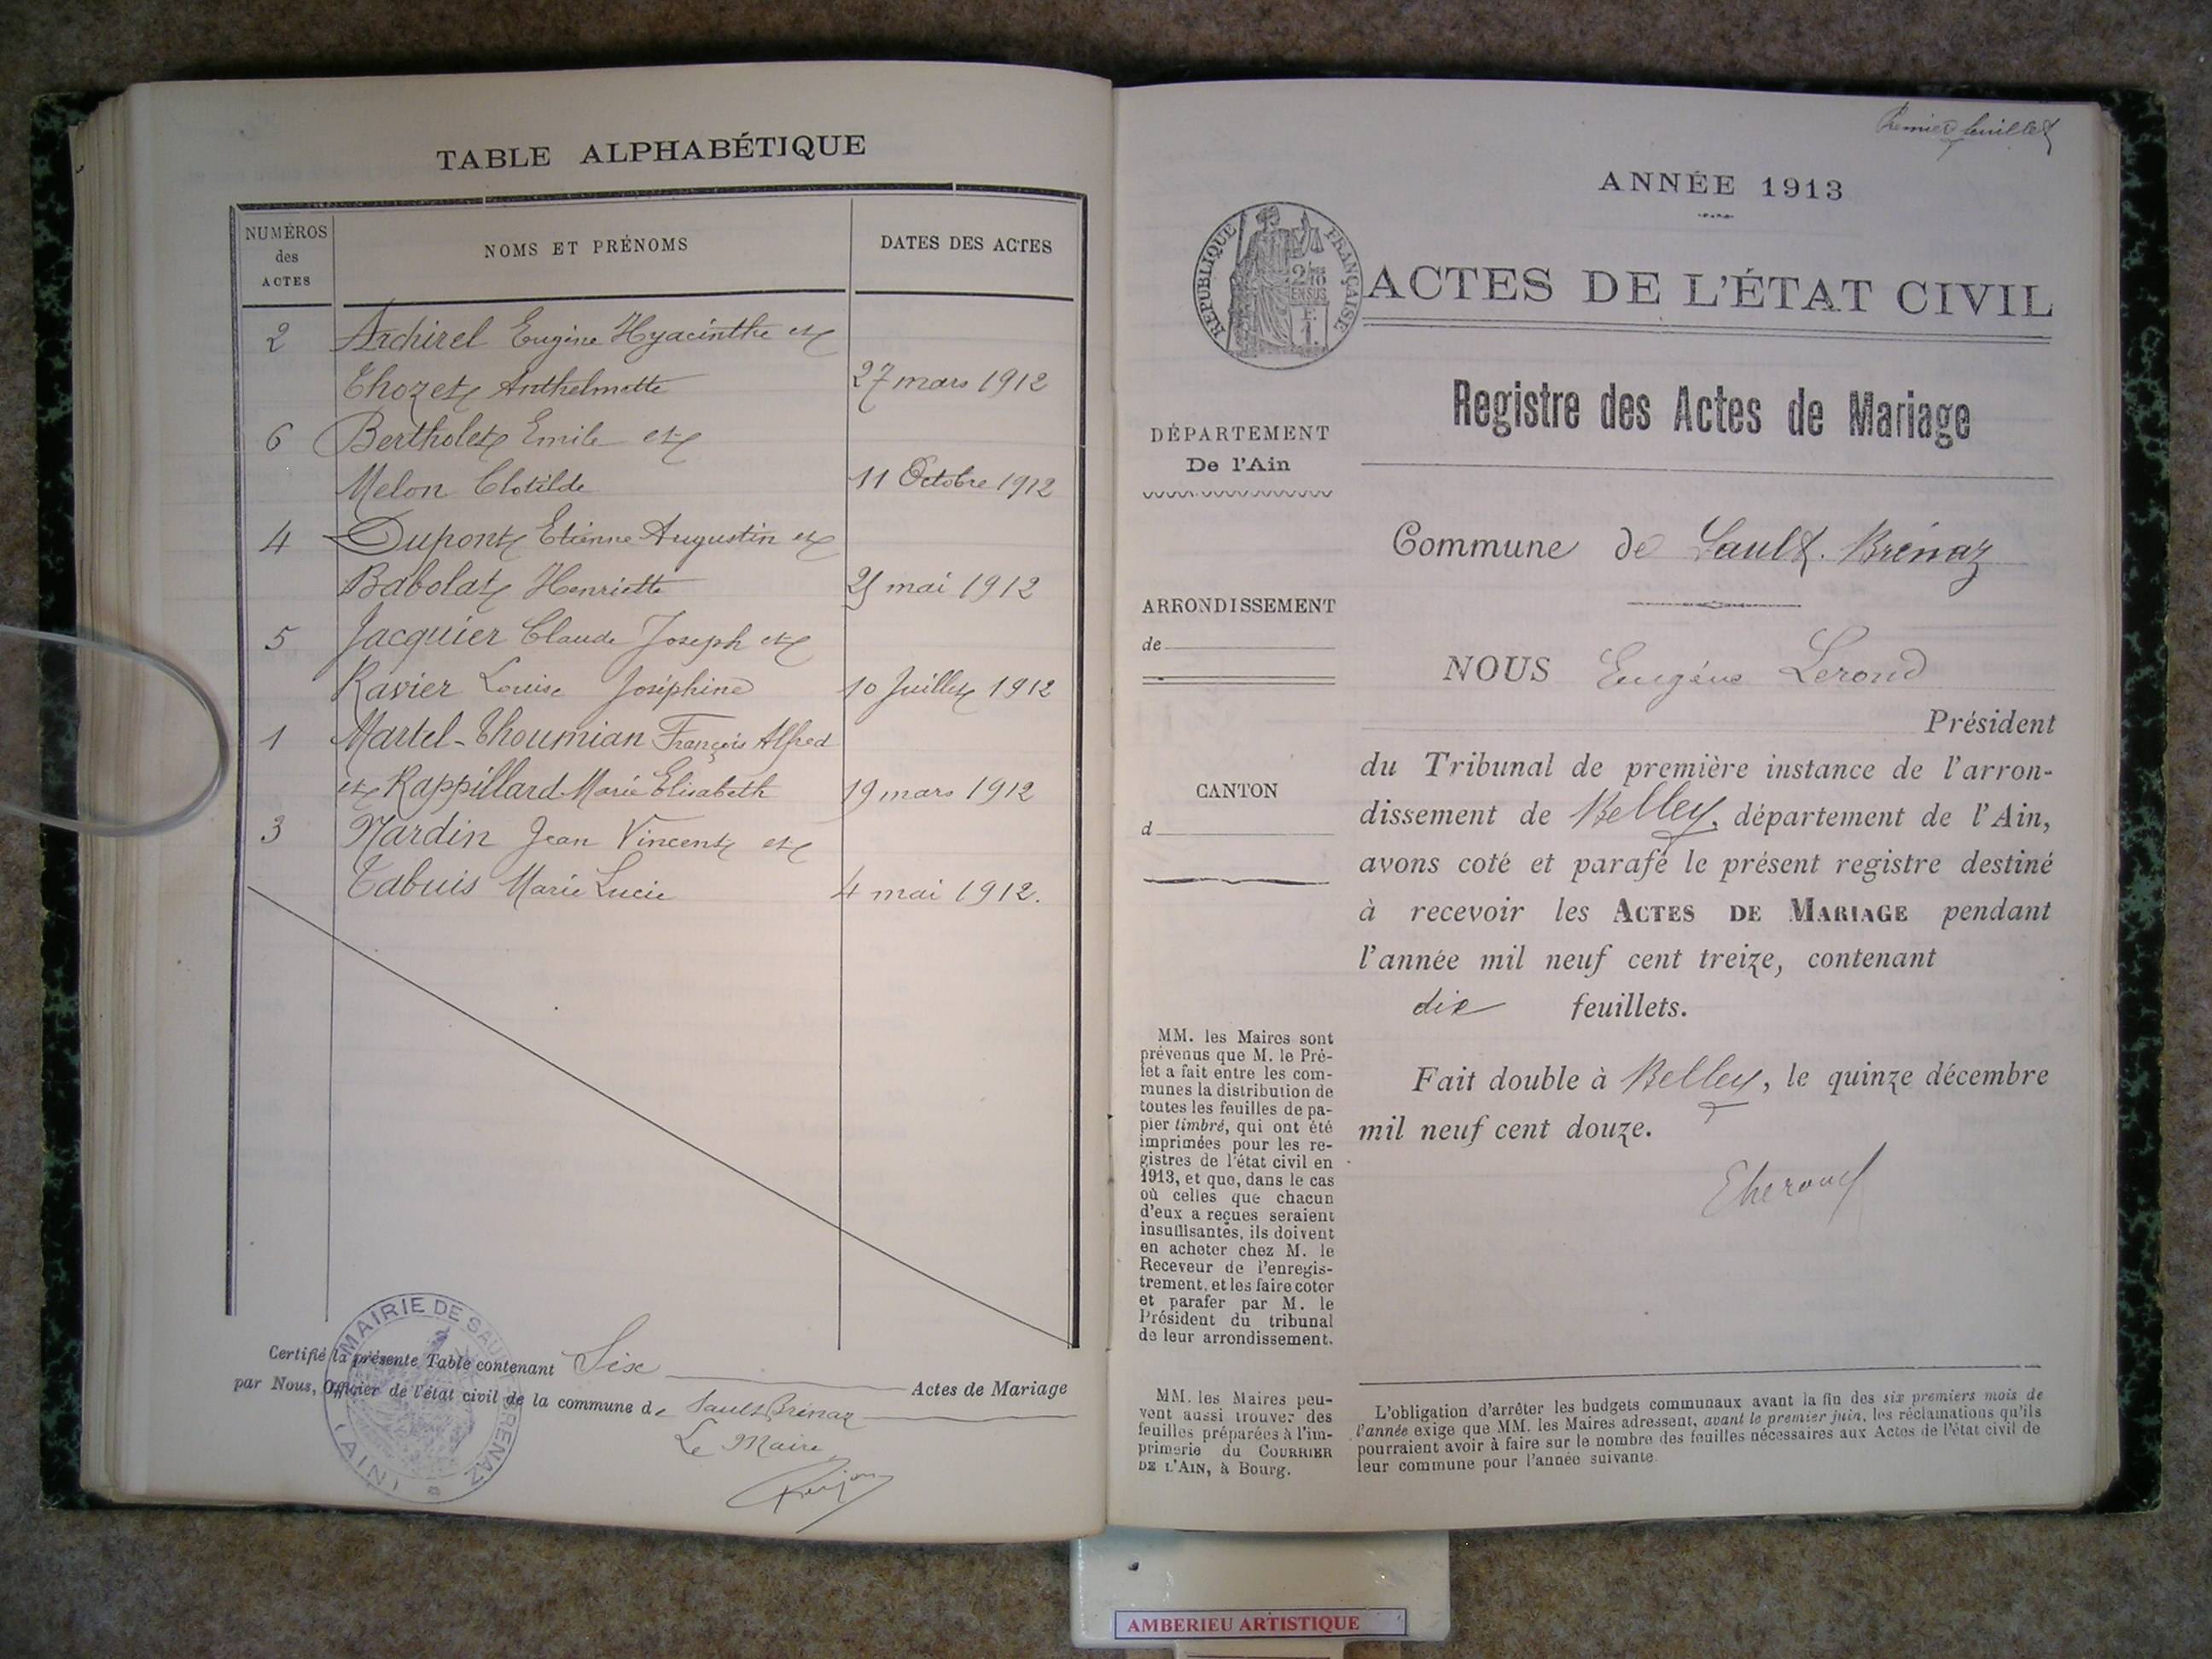 TABLE ALPHABÉTIQUE
NUMÉROS des ACTES
NOMS ET PRÉNOMS
DATES DES ACTES
2 Archirel Eugène Hyacinthe et
Chozet Anthelmette 27 mars 1912
6 Bertholet Emile et
Melon Clotilde 11 Octobre 1912
4 Dupont Etienne Augustin et
Babolat Henriette mai 1912
5 Jacquier Claude Joseph et
Ravier Louise Joséphine 10 Juillet 1912
1 Martel-Thoumian François Alfred
et Rappillard Marie Elisabeth 19 mars 1912
3 Nardin Jean Vincent et
Tabuis Marie Lucie 4 mai 1912.
Certifié la présente Table contenant Six Actes de Mariage
par Nous, Officier de l'état civil de la commune de Sault Brénaz
Le Maire
MAIRIE DE SAULT BRENAZ (AIN)
Premier feuillet
ANNÉE 1913
RÉPUBLIQUE FRANÇAISE
ACTES DE L'ÉTAT CIVIL
Registre des Actes de Mariage
DÉPARTEMENT
De l'Ain
ARRONDISSEMENT
de
CANTON
d
MM. les Maires sont
prévenus que M. le Pré-
fet a fait entre les com-
munes la distribution de
toutes les feuilles de pa-
pier timbré, qui ont été
imprimées pour les re-
gistres de l'état civil en
1913, et que, dans le cas
où celles que chacun
d'eux a reçues seraient
insuffisantes, ils doivent
en acheter chez M. le
Receveur de l'enregis-
trement, et les faire coter
et parafer par M. le
Président du tribunal
de leur arrondissement.
MM. les Maires peu-
vent aussi trouver des
feuilles préparées à l'im-
primerie du COURRIER
DE L'AIN, à Bourg.
Commune de Sault-Brénaz
NOUS Eugène
Président
du Tribunal de première instance de l'arron-
dissement de Belley, département de l'Ain,
avons coté et parafé le présent registre destiné
à recevoir les ACTES DE MARIAGE pendant
l'année mil neuf cent treize, contenant
dix feuillets.
Fait double à Belley, le quinze décembre
mil neuf cent douze.
L'obligation d'arrêter les budgets communaux avant la fin des six premiers mois de
l'année exige que MM. les Maires adressent, avant le premier juin, les réclamations qu'ils
pourraient avoir à faire sur le nombre des feuilles nécessaires aux Actes de l'état civil de
leur commune pour l'année suivante.
AMBERIEU ARTISTIQUE